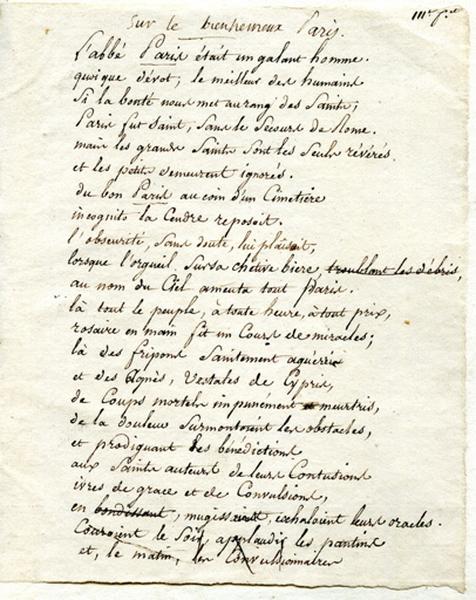 Sur le bienheureux Paris.
l'abbé Paris était un galant homme.
quoique dévot; le meilleur des humains
si la bonté nous met au rang des Saints;
Paris fut Saint, sans le Secours de Rome.
mais les grands Saints sont les seuls révérés.
et les petits demeurent ignorés.
du bon Paris au coin d'un Cimetière
incognito la Cendre reposoit.
l'obscurité, sans doute, lui plaisait,
lorsque l'orgueil sur sa chetive biere, troublant les débris,
au nom du Ciel ameuta tout Paris.
là tout le peuple, à toute heure, à tout prix,
rosaire en main fit un Cours de miracles;
là des fripons Saintement aguérris
et des Agnès, Vestales de Cypris,
de Coups mortels impunément meurtris,
de la douleur Surmontoient les obstacles,
et prodiguant les bénédictions
aux Saints auteurs de leurs Contusions
ivres de grace et de Convulsions,
en bondissant, mugissant, exhaloient leurs oracles.
Couroient le Soir, applaudir les pantins
et, le matin, les Convulsionnaires